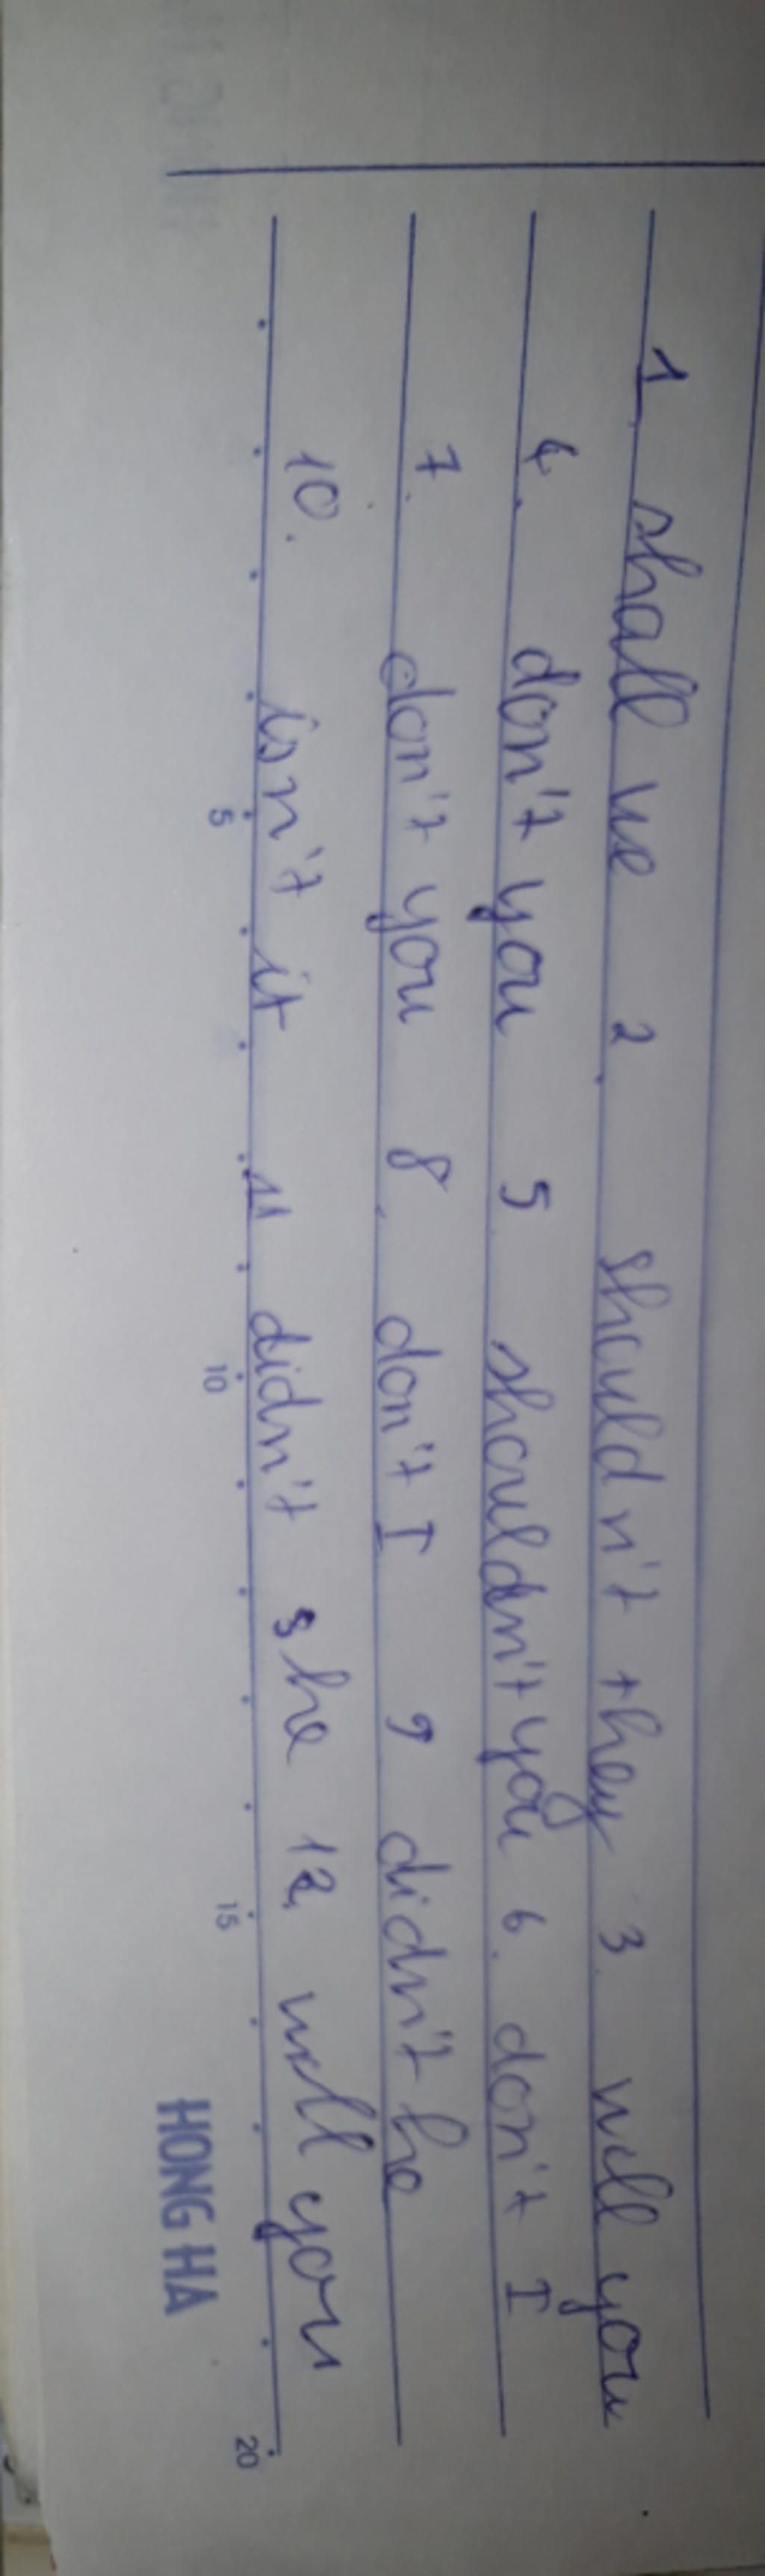 1. shall we 2. shouldn't they 3. will you
4. don't you 5. shouldn't you 6. don't I
7. don't you 8. don't I 9 didn't he
10. isn't it 11 didn't she 12. will you
5 10 15 20
HONG HA